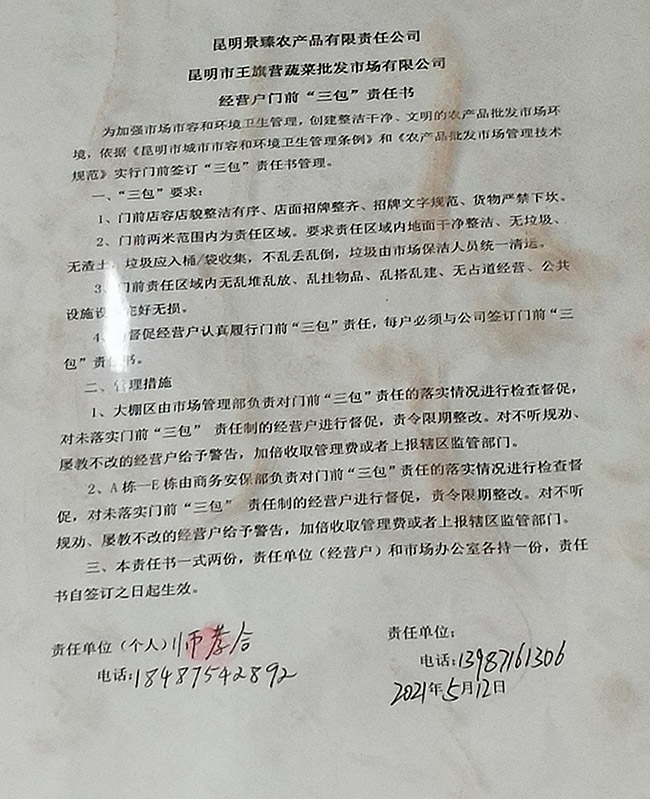 昆明景臻农产品有限责任公司
昆明市王旗营蔬菜批发市场有限公司
经营户门前“三包”责任书
为加强市场市容和环境卫生管理，创建整洁干净、文明的农产品批发市场环
境，依据《昆明市城市市容和环境卫生管理条例》和《农产品批发市场管理技术
规范》实行门前签订“三包”责任书管理。
一、“三包”要求：
1、门前店容店貌整洁有序、店面招牌整齐、招牌文字规范、货物严禁下坎。
2、门前两米范围内为责任区域。要求责任区域内地面干净整洁、无垃圾、
无渣土，垃圾应入桶/袋收集，不乱丢乱倒，垃圾由市场保洁人员统一清运。
3、门前责任区域内无乱堆乱放、乱挂物品、乱搭乱建、无占道经营、公共
设施设 完好无损。
4、督促经营户认真履行门前“三包”责任，每户必须与公司签订门前“三
包”责任书。
二、管理措施
1、大棚区由市场管理部负责对门前“三包”责任的落实情况进行检查督促，
对未落实门前“三包” 责任制的经营户进行督促，责令限期整改。对不听规劝、
屡教不改的经营户给予警告，加倍收取管理费或者上报辖区监管部门。
2、A 栋—E 栋由商务安保部负责对门前“三包”责任的落实情况进行检查督
促，对未落实门前“三包” 责任制的经营户进行督促，责令限期整改。对不听
规劝、屡教不改的经营户给予警告，加倍收取管理费或者上报辖区监管部门。
三、本责任书一式两份，责任单位（经营户）和市场办公室各持一份，责任
书自签订之日起生效。
责任单位（个人）师孝合
责任单位：
电话:18487542892
电话:13987161306
2021年5月12日